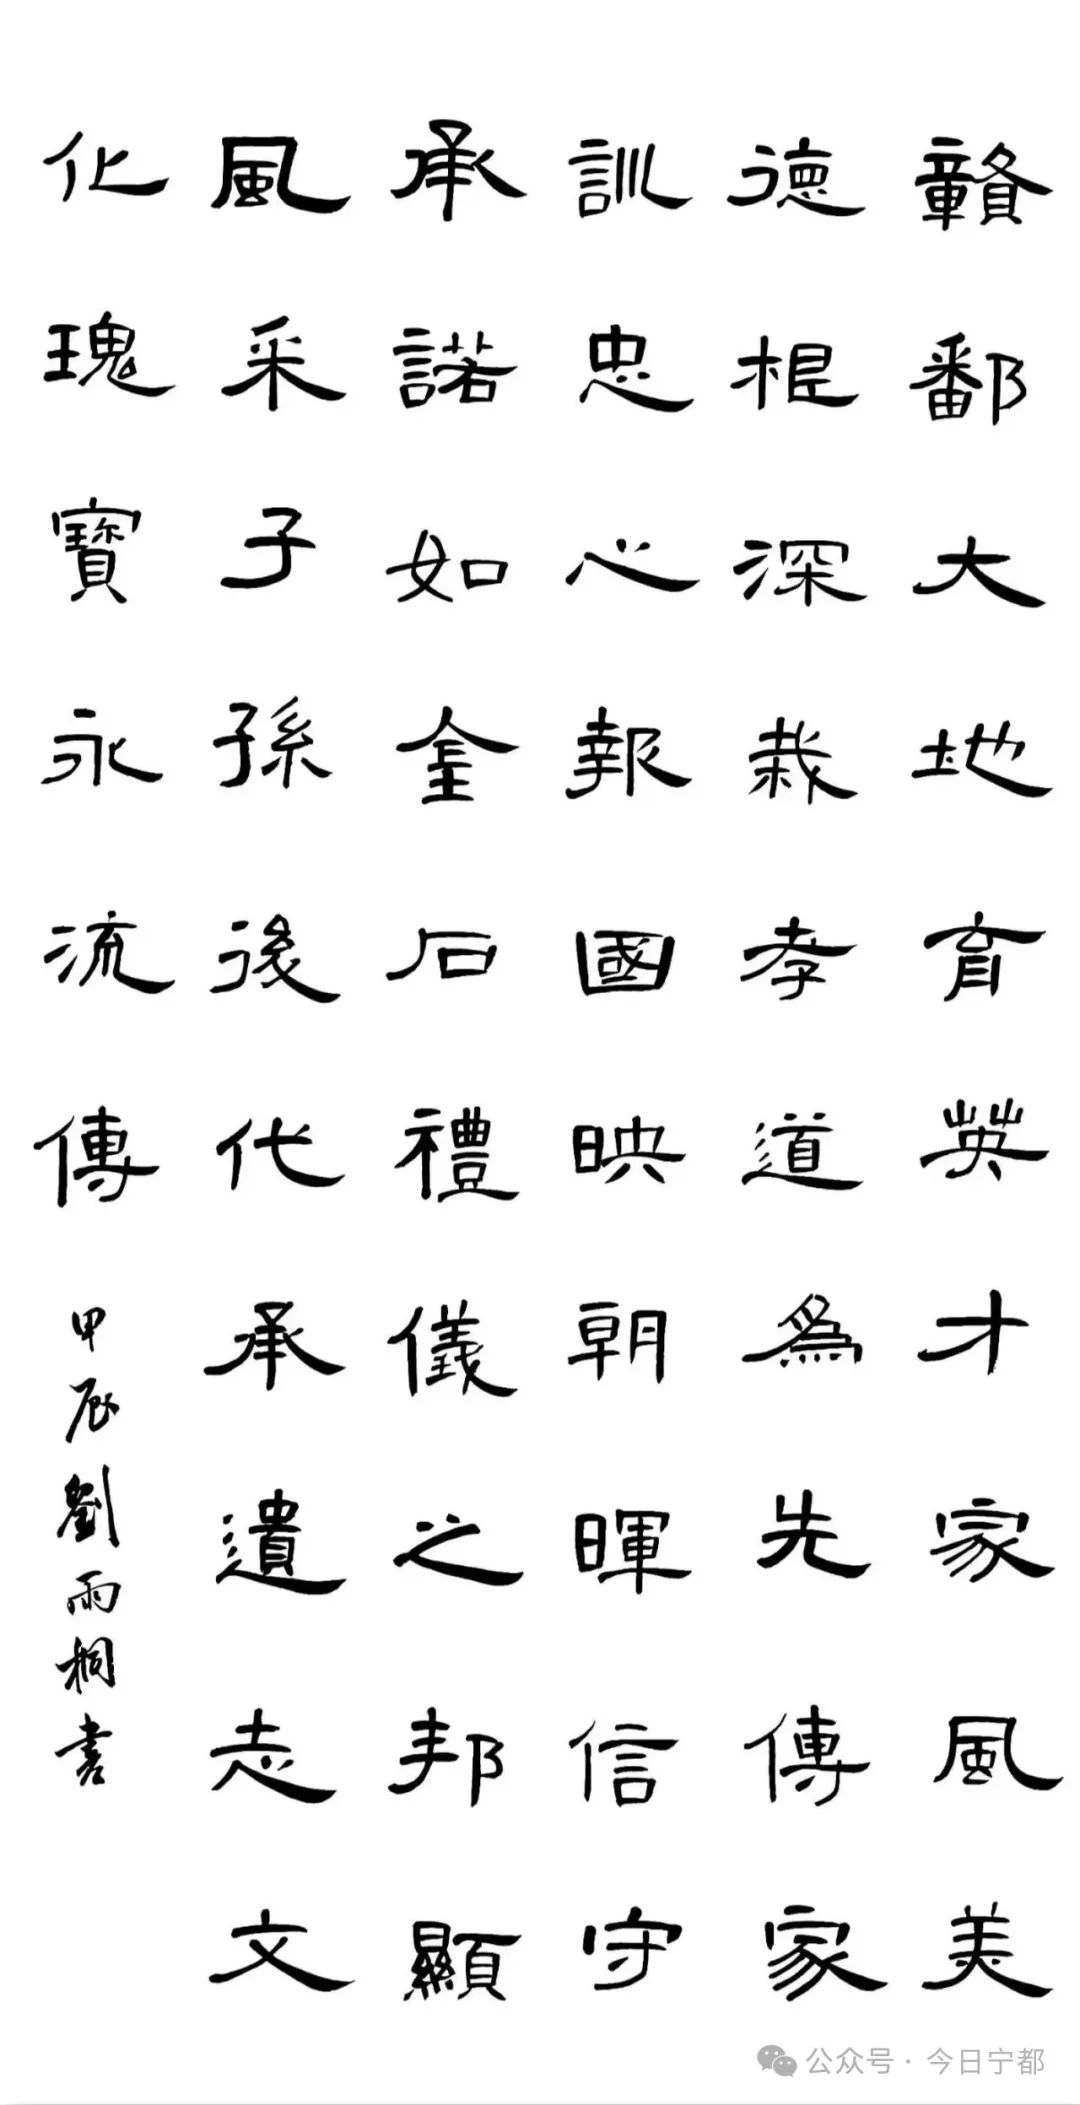 贛鄱大地育英才家風美
德根深栽孝道為先傳家
訓忠心報國映朝暉信守
承諾如金石禮儀之邦顯
風采子孫後代承遺志文
化瑰寶永流傳
甲辰劉雨桐書
公众号 · 今日宁都